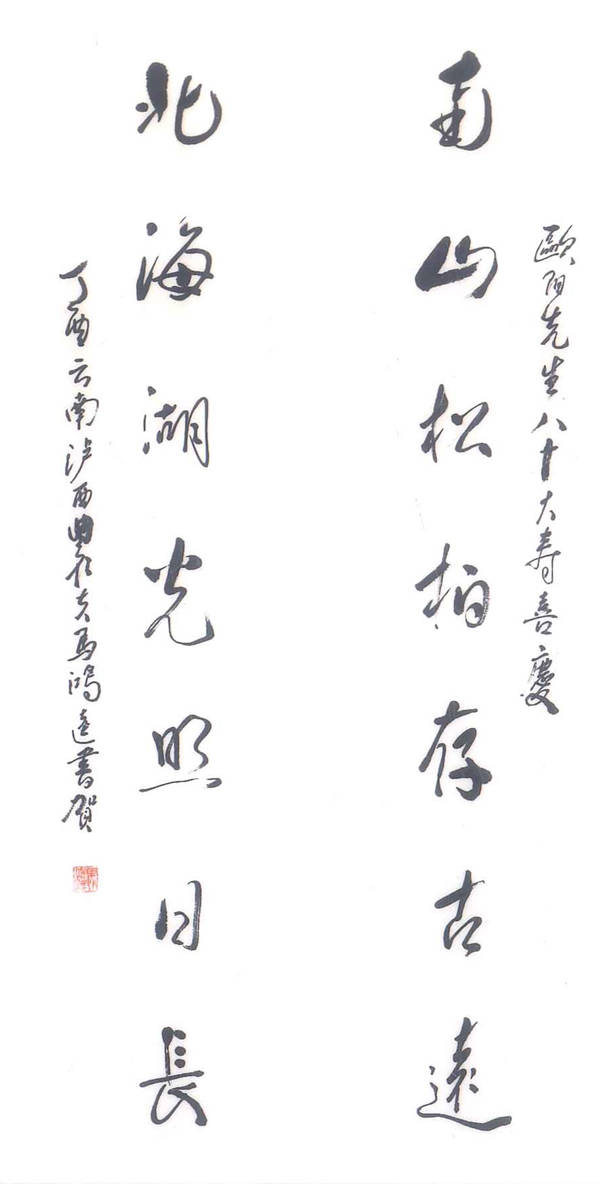 歐阳先生八十大寿喜慶
南山松柏存古遠
北海湖光照日長
丁酉云南泸西農夫马鸿遠書贺